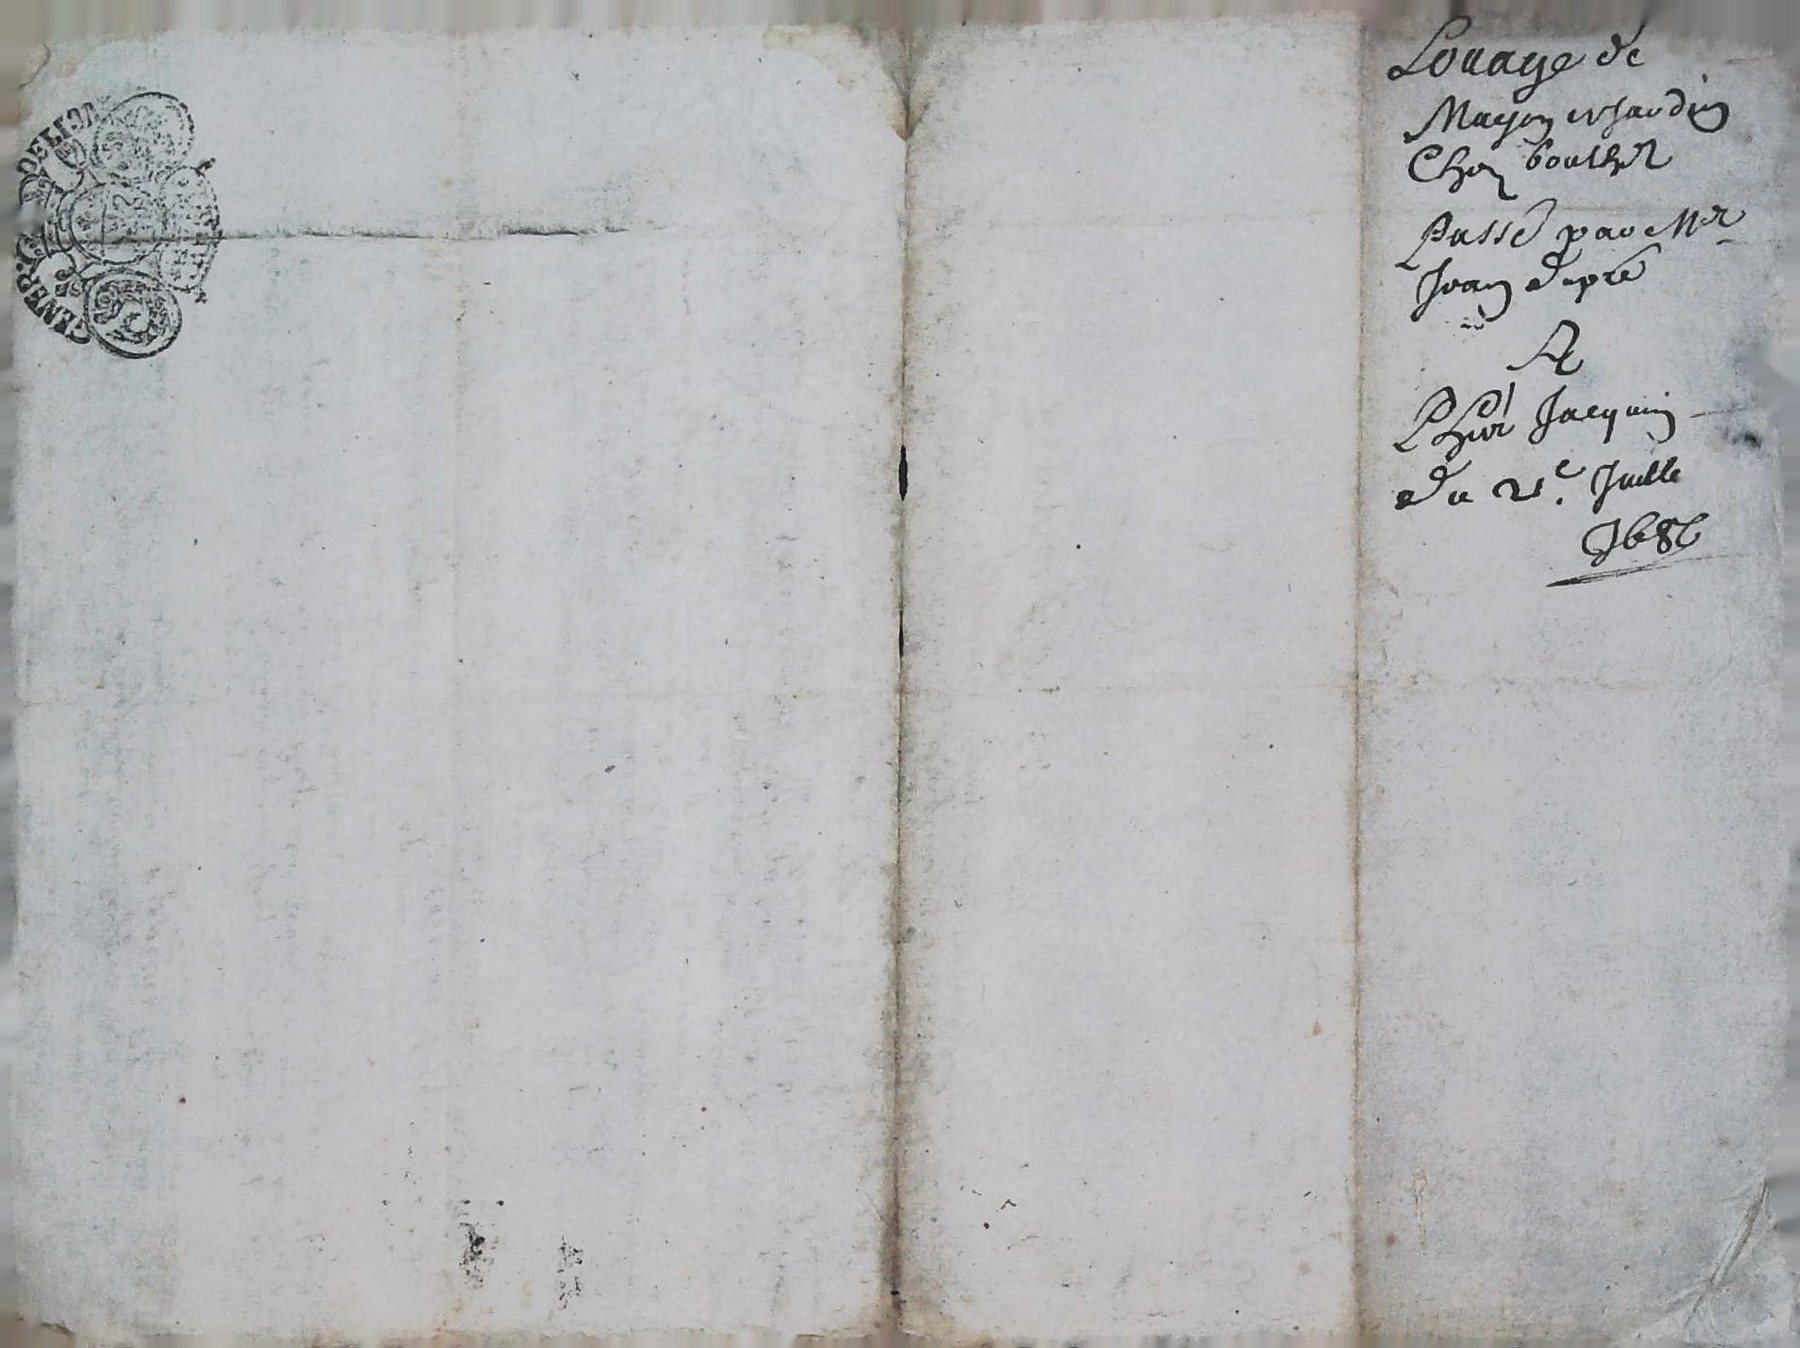 Louage de
Mayson et Jardin
Chez
Passé par Mr
Jean dupré
A
Jacquin
du 21e. Juille
1686
GENER